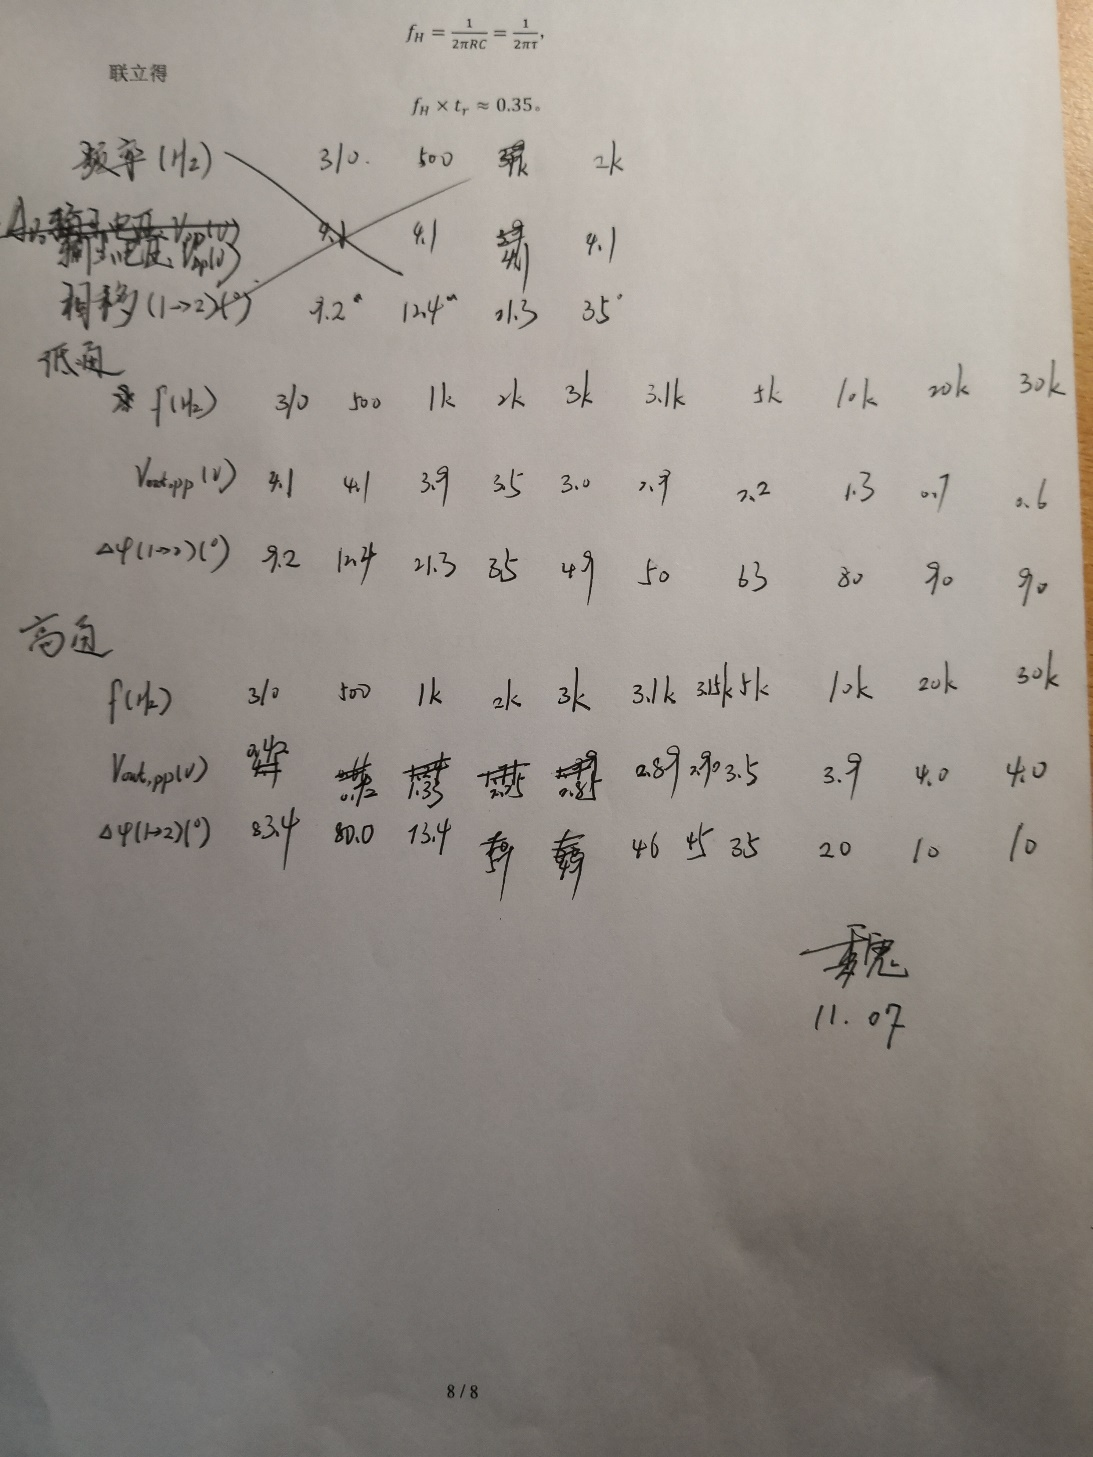 f_H = 1/(2πRC) = 1/(2πτ),
联立得
f_H × t_r ≈ 0.35。
频率(Hz) 310. 500 2k
输出电压 Vpp(V) 4.1 4.1 4.1
相移(1→2)(°) 9.2° 12.4° 21.3 35°
低通
f(Hz) 310 500 1k 2k 3k 3.1k 5k 10k 20k 30k
Vout,pp(V) 4.1 4.1 3.9 3.5 3.0 2.9 2.2 1.3 0.7 0.6
Δφ(1→2)(°) 9.2 12.4 21.3 35 49 50 63 80 90 90
高通
f(Hz) 310 500 1k 2k 3k 3.1k 3.15k 5k 10k 20k 30k
Vout,pp(V) 0.42 2.89 2.90 3.5 3.9 4.0 4.0
Δφ(1→2)(°) 83.4 80.0 73.4 46 45 35 20 10 10
魏
11.07
8 / 8